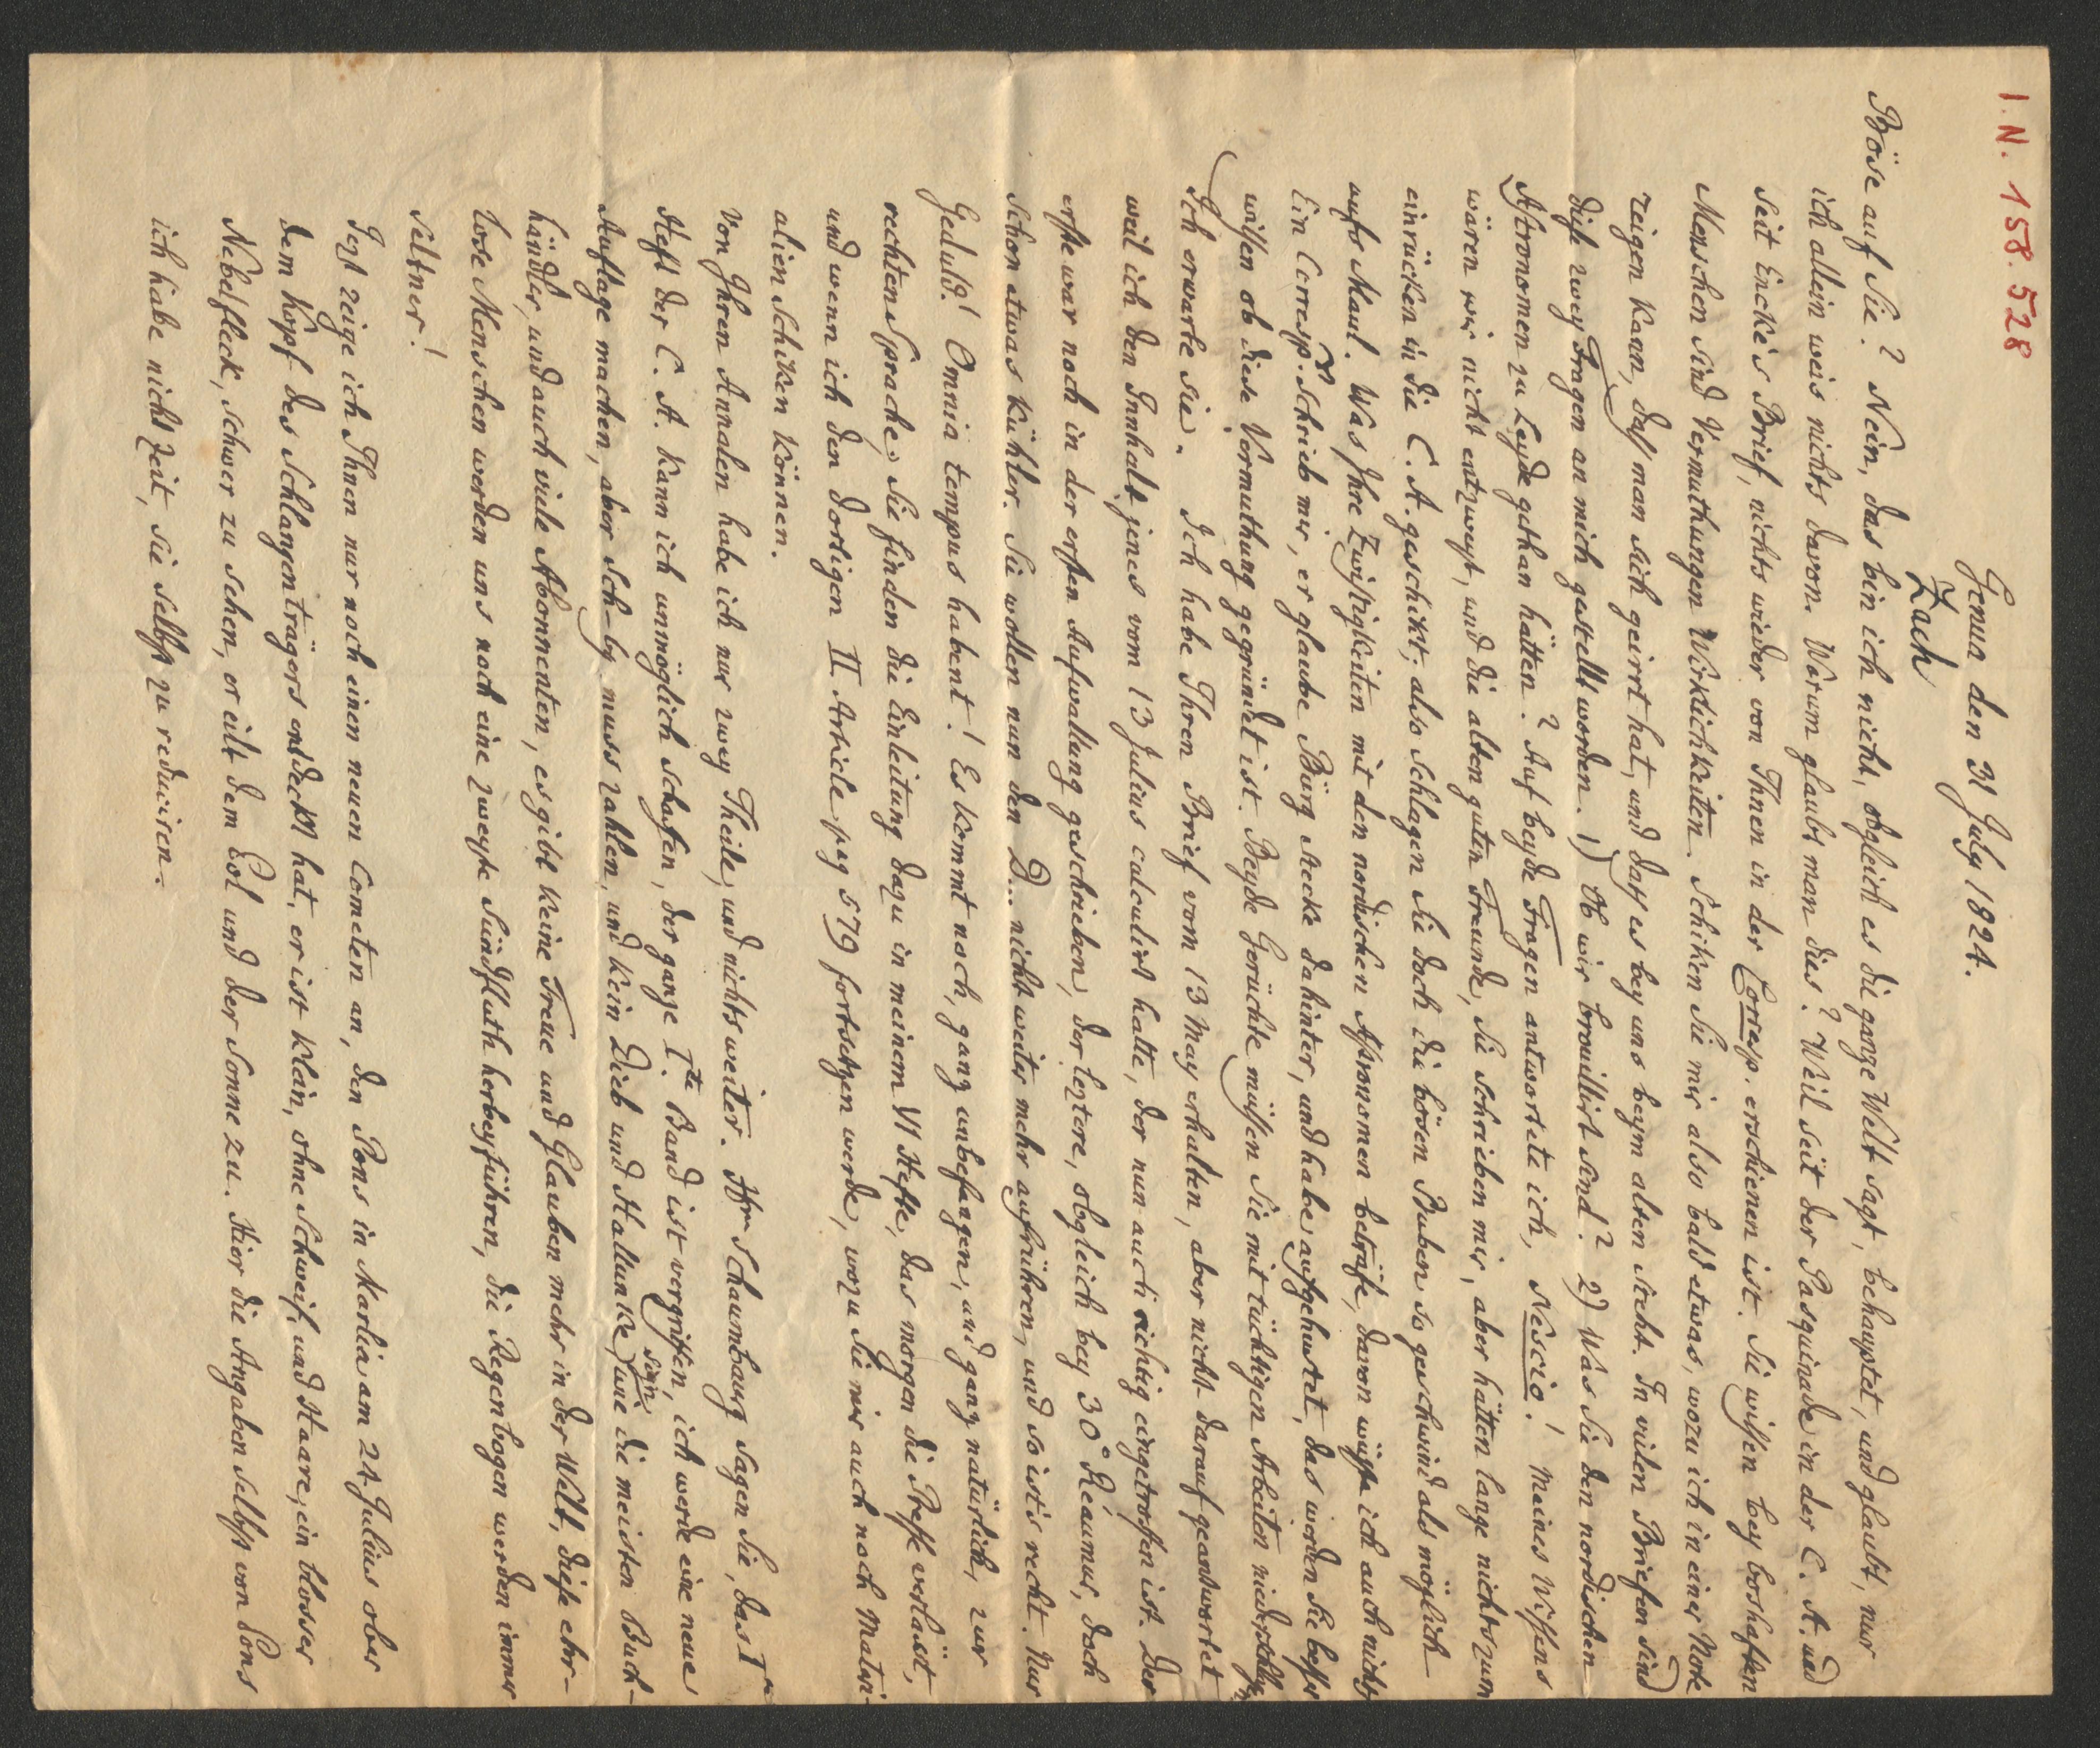 I.N. 158.528
Genua den 31 July 1824.
Zach
Böse auf Sie? Nein, das bin ich nicht, obgleich es die ganze Welt sagt, behauptet, und glaubt, nur
ich allein weis nichts davon. Warum glaubt man dies? Weil seit der Pasquinade in der C. A. und
seit Encke's Brief, nichts wieder von Ihnen in der Corresp. erschienen ist. Sie wissen bey boshaften
Menschen sind Vermuthungen Wirklichkeiten. Schiken Sie mir also bald etwas, wozu ich in einer Note
zeigen kann, dass man sich geirrt hat, und dass es bey uns beym alten steht. In vielen Briefen sind
diese zwey Fragen an mich gestellt worden. 1) Ob wir brouillirt sind? 2) Was Sie den nordischen
Astronomen zu Leyde gethan hätten? Auf beyde Fragen antwortete ich, Nescio! Meines Wissens
wären wir nicht entzweyt, und die alten guten Freunde, Sie schrieben mir, aber hätten lange nichts zum
einrücken in die C. A. geschikt; also schlagen Sie doch die bösen Buben so geschwind als möglich
aufs Maul. Was Ihre Zwistigkeiten mit den nordischen Astronomen beträfe, davon wüsste ich auch nichts
Ein Corresp. schrieb mir, er glaube Bürg stecke dahinter, und habe aufgehustet, das werden Sie besser
wissen ob diese Vermuthung gegründet ist. Beyde Gerüchte müssen Sie mit tüchtigen Arbeiten niederschlagen
Ich erwarte sie. Ich habe Ihren Brief vom 13 May erhalten, aber nicht darauf geantwortet
weil ich den Innhalt jenes vom 13 Julius calculirt hatte, der nun auch richtig eingetroffen ist. Der
erste war noch in der ersten Aufwallung geschrieben, der leztere, obgleich bey 30° Réaumur, doch
schon etwas kühler. Sie wollen nun den D... nicht weiter mehr aufrühren, und so ist's recht. Nur
Geduld! Omnia tempus habent! Es kommt noch, ganz unbefangen, und ganz natürlich, zur
rechten Sprache. Sie finden die Einleitung dazu in meinem VI Hefte, das morgen die Presse verlässt,
und wenn ich den dortigen II Article pag 579 fortsetzen werde, wozu Sie mir auch noch Materi-
alien schiken können.
Von Ihren Annalen habe ich nur zwey Theile, und nichts weiter. Hrn Schaumburg sagen Sie, das I
Heft der C. A. kann ich unmöglich schaffen, der ganze I.te Band ist vergriffen, ich werde eine neue
Auflage machen, aber Sch-bg muss zahlen, und kein Dieb und Hallunke sein, wie die meisten Buch-
händler, und auch viele Abonnenten, es gibt keine Treue und Glauben mehr in der Welt, diese ehr-
lose Menschen werden uns noch eine zweyte Sündfluth herbeyführen, die Regenbogen werden immer
seltner!
Jezt zeige ich Ihnen nur noch einen neuen Cometen an, den Pons in Marlia am 24 Julius ober
dem Kopf des Schlangenträgers entdeckt hat, er ist klein, ohne Schweif, und Haare, ein bloser
Nebelfleck, schwer zu sehen, er eilt dem Pol und der Sonne zu. Hier die Angaben selbst von Pons
ich habe nicht Zeit, sie selbst zu reduciren.